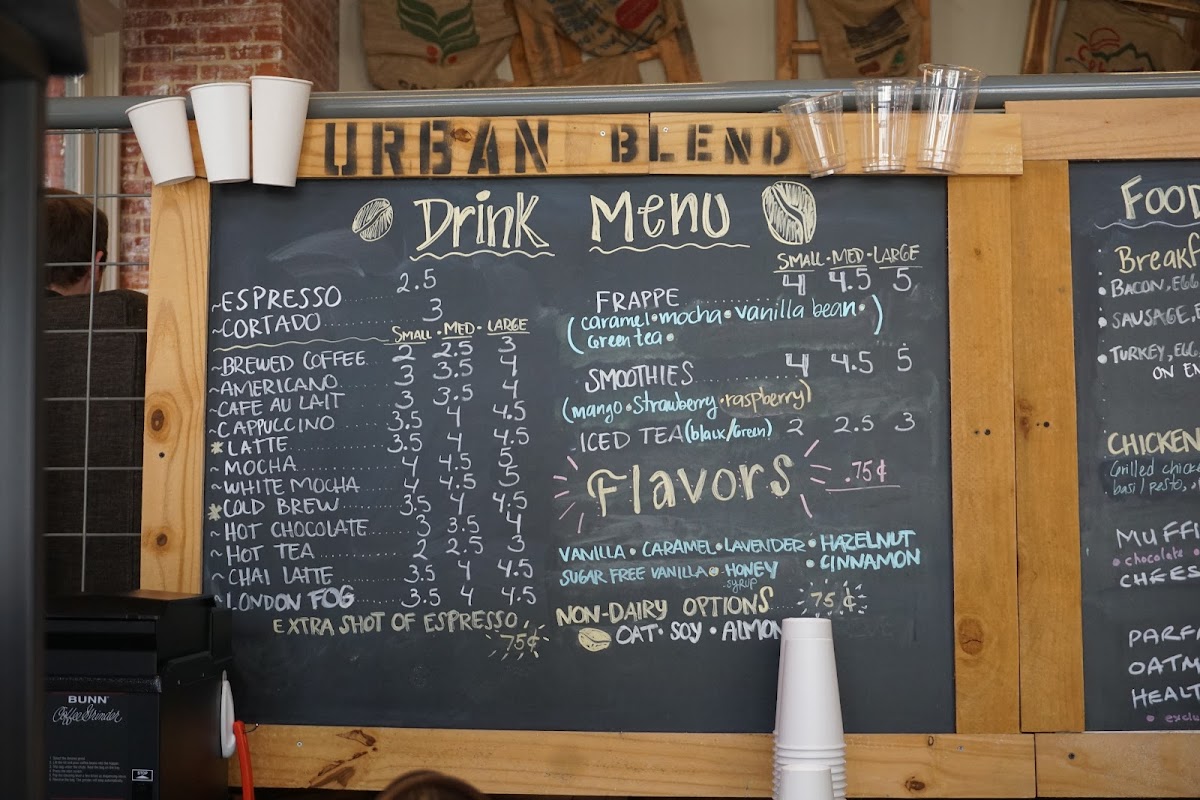 URBAN BLEND
Drink Menu
~ESPRESSO 2.5
~CORTADO 3
SMALL · MED · LARGE
~BREWED COFFEE 2 2.5 3
~AMERICANO 3 3.5 4
~CAFE AU LAIT 3 3.5 4
~CAPPUCCINO 3.5 4 4.5
*LATTE 3.5 4 4.5
~MOCHA 4 4.5 5
~WHITE MOCHA 4 4.5 5
*COLD BREW 3.5 4 4.5
~HOT CHOCOLATE 3 3.5 4
~HOT TEA 2 2.5 3
~CHAI LATTE 3.5 4 4.5
~LONDON FOG 3.5 4 4.5
EXTRA SHOT OF ESPRESSO
75¢
SMALL · MED · LARGE
FRAPPE 4 4.5 5
(caramel • mocha • vanilla bean •
Green tea • )
SMOOTHIES 4 4.5 5
(mango • Strawberry • raspberry)
ICED TEA (black/Green) 2 2.5 3
Flavors .75¢
VANILLA • CARAMEL • LAVENDER • HAZELNUT
SUGAR FREE VANILLA • HONEY • CINNAMON
SYRUP
NON-DAIRY OPTIONS 75¢
OAT • SOY •
BACON,
• SAUSAGE,
• TURKEY,
ON
CHICKEN
Grilled
• chocolate
BUNN
Coffee Grinder
STOP